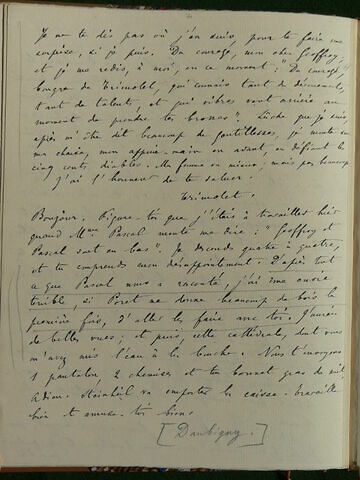 Je ne te dis pas où j'en suis, pour te faire une
surprise, si je puis. Du courage, mon cher Geoffroy,
et je me redis, à moi, en ce moment : "Du courage
bougre de Trimolet, qui connais tant de
tant de talents, et qui
moment de prendre les brosses". Lâche que je suis,
après m'être dit beaucoup de gentillesses, je monte sur
ma chaise, mon appuie-main en avant en défiant les
cinq cents diables. Ma femme va mieux, mais pas beaucoup
J'ai l'honneur de te saluer.
Trimolet.
Bonjour. Figure-toi que j'étais à travailler hier
quand Mme Pascal monte me dire : "Geoffroy et
Pascal sont en bas". Je descends quatre à quatre,
et tu comprends mon désappointement. D'après tout
ce que Pascal nous a raconté, j'ai une envie
terrible, si me donne beaucoup de bois la
première fois, d'aller les faire avec toi. J'aurai
de belles vues ; et puis, cette cathédrale, dont vous
m'avez mis l'eau à la bouche. Nous t'envoyons
1 pantalon, 2 chemises et ton bonnet gras de nuit.
Adieu. va emporter la caisse. Travaille
bien et amuse-toi bien.
[Daubigny.]